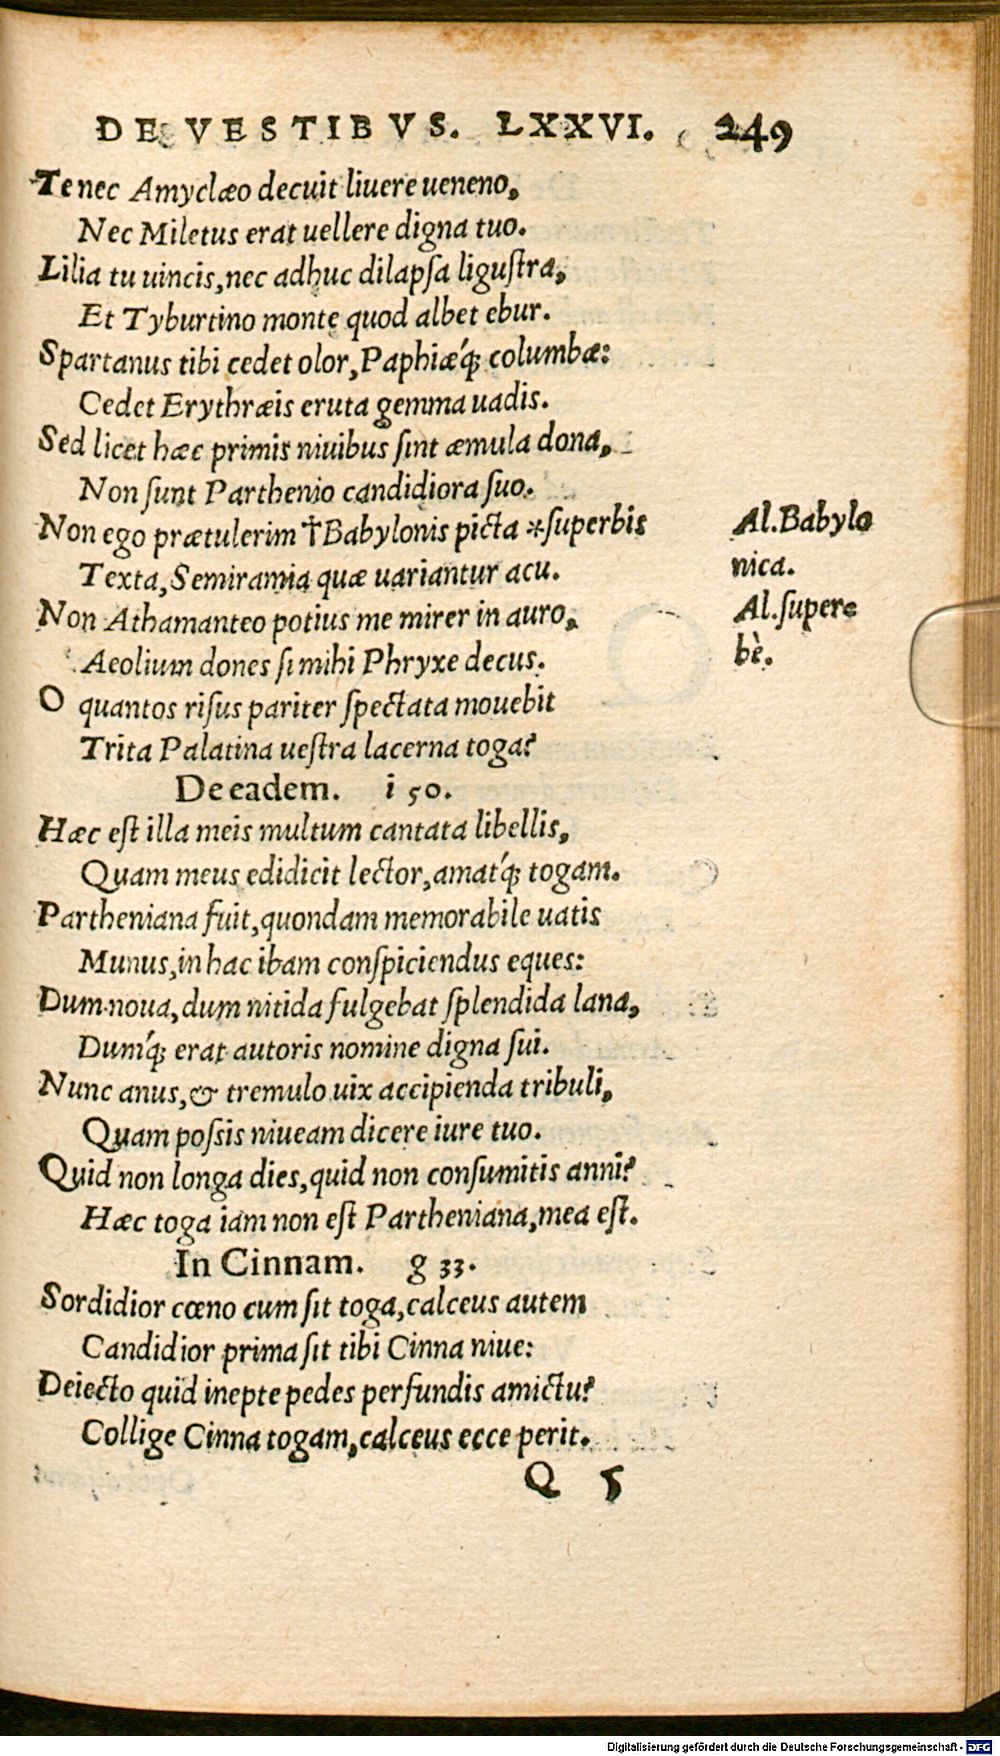 DE VESTIBVS. LXXVI. 249
Te nec Amyclæo decuit liuere ueneno,
Nec Miletus erat uellere digna tuo.
Lilia tu uincis, nec adhuc dilapſa liguſtra,
Et Tyburtino monte quod albet ebur.
Spartanus tibi cedet olor, Paphiæq́ꝫ columbæ:
Cedet Erythræis eruta gemma uadis.
Sed licet hæc primis niuibus ſint æmula dona,
Non ſunt Parthenio candidiora ſuo.
Non ego prætulerim †Babylonis picta *ſuperbis
Al.Babylo
Texta, Semiramia quæ uariantur acu.
nica.
Non Athamanteo potius me mirer in auro,
Al.ſupere
Aeolium dones ſi mihi Phryxe decus.
bè.
O quantos riſus pariter ſpectata mouebit
Trita Palatina ueſtra lacerna toga?
De eadem. i 50.
Hæc eſt illa meis multum cantata libellis,
Quam meus edidicit lector, amatq́ꝫ togam.
Partheniana fuit, quondam memorabile uatis
Munus, in hac ibam conſpiciendus eques:
Dum noua, dum nitida fulgebat ſplendida lana,
Dumq́ꝫ erat autoris nomine digna ſui.
Nunc anus, & tremulo uix accipienda tribuli,
Quam poſsis niueam dicere iure tuo.
Quid non longa dies, quid non conſumitis anni?
Hæc toga iam non eſt Partheniana, mea eſt.
In Cinnam. g 33.
Sordidior cœno cum ſit toga, calceus autem
Candidior prima ſit tibi Cinna niue:
Deiecto quid inepte pedes perfundis amictu?
Collige Cinna togam, calceus ecce perit.
Q 5
Digitalisierung gefördert durch die Deutsche Forschungsgemeinschaft - DFG